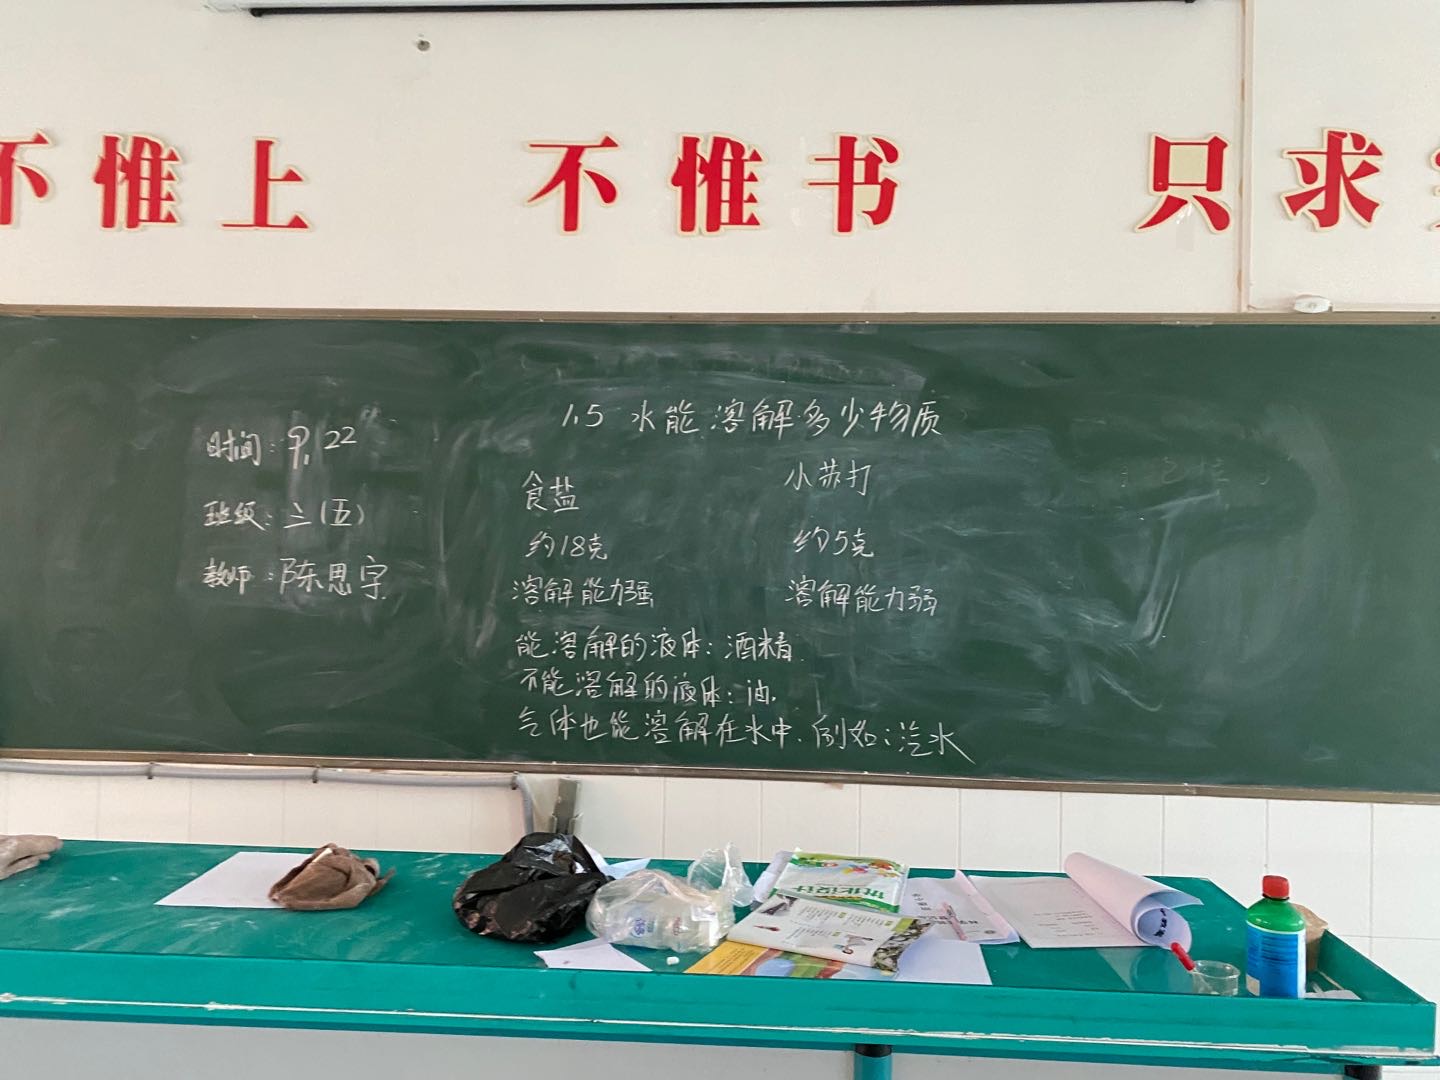 不惟上 不惟书 只求
1.5 水能溶解多少物质
时间：9.22
班级：三（五）
教师：陈思宇
食盐 小苏打
约18克 约5克
溶解能力强 溶解能力弱
能溶解的液体：酒精
不能溶解的液体：油.
气体也能溶解在水中.例如：汽水